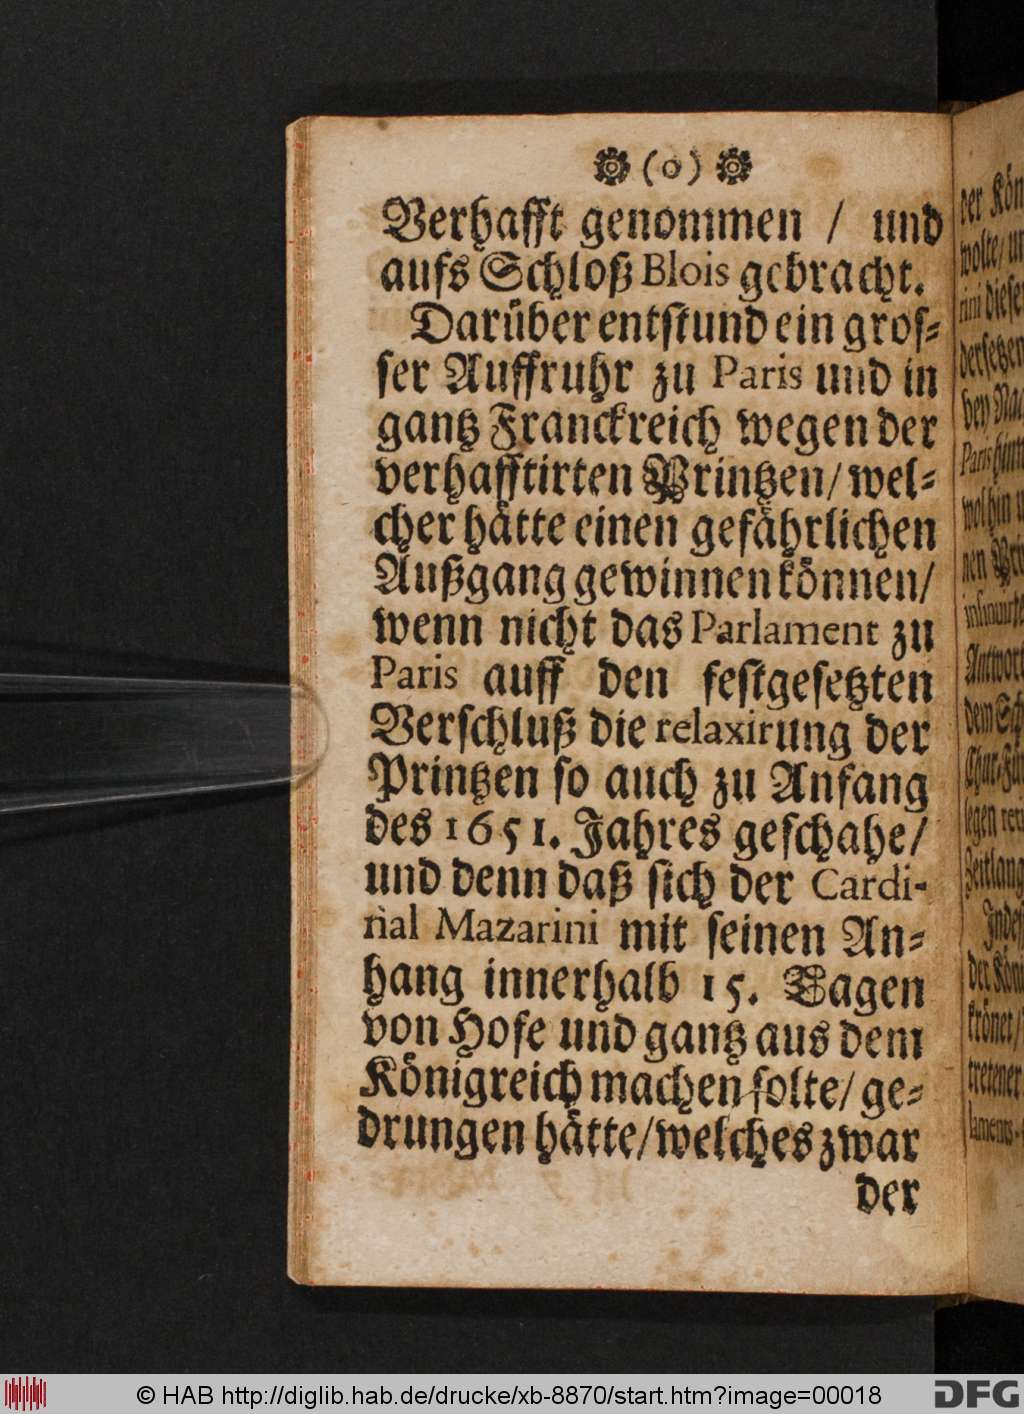 (o)
Verhafft genommen / und
aufs Schloß Blois gebracht.
Darüber entstund ein gros-
ser Auffruhr zu Paris und in
gantz Franckreich wegen der
verhafftirten Printzen / wel-
cher hätte einen gefährlichen
Außgang gewinnen können /
wenn nicht das Parlament zu
Paris auff den festgesetzten
Verschluß die relaxirung der
Printzen so auch zu Anfang
des 1651. Jahres geschahe /
und denn daß sich der Cardi-
nal Mazarini mit seinen An-
hang innerhalb 15. Tagen
von Hofe und gantz aus dem
Königreich machen solte / ge-
drungen hätte / welches zwar
der
der Kön
wolte / un
rini diese
dersetzen
Paris hint
nen Pri
Antwort
dem Sch
legen
Zeitlang
Indes
der Köni
krönet /
tretener
laments-
© HAB http://diglib.hab.de/drucke/xb-8870/start.htm?image=00018
DFG